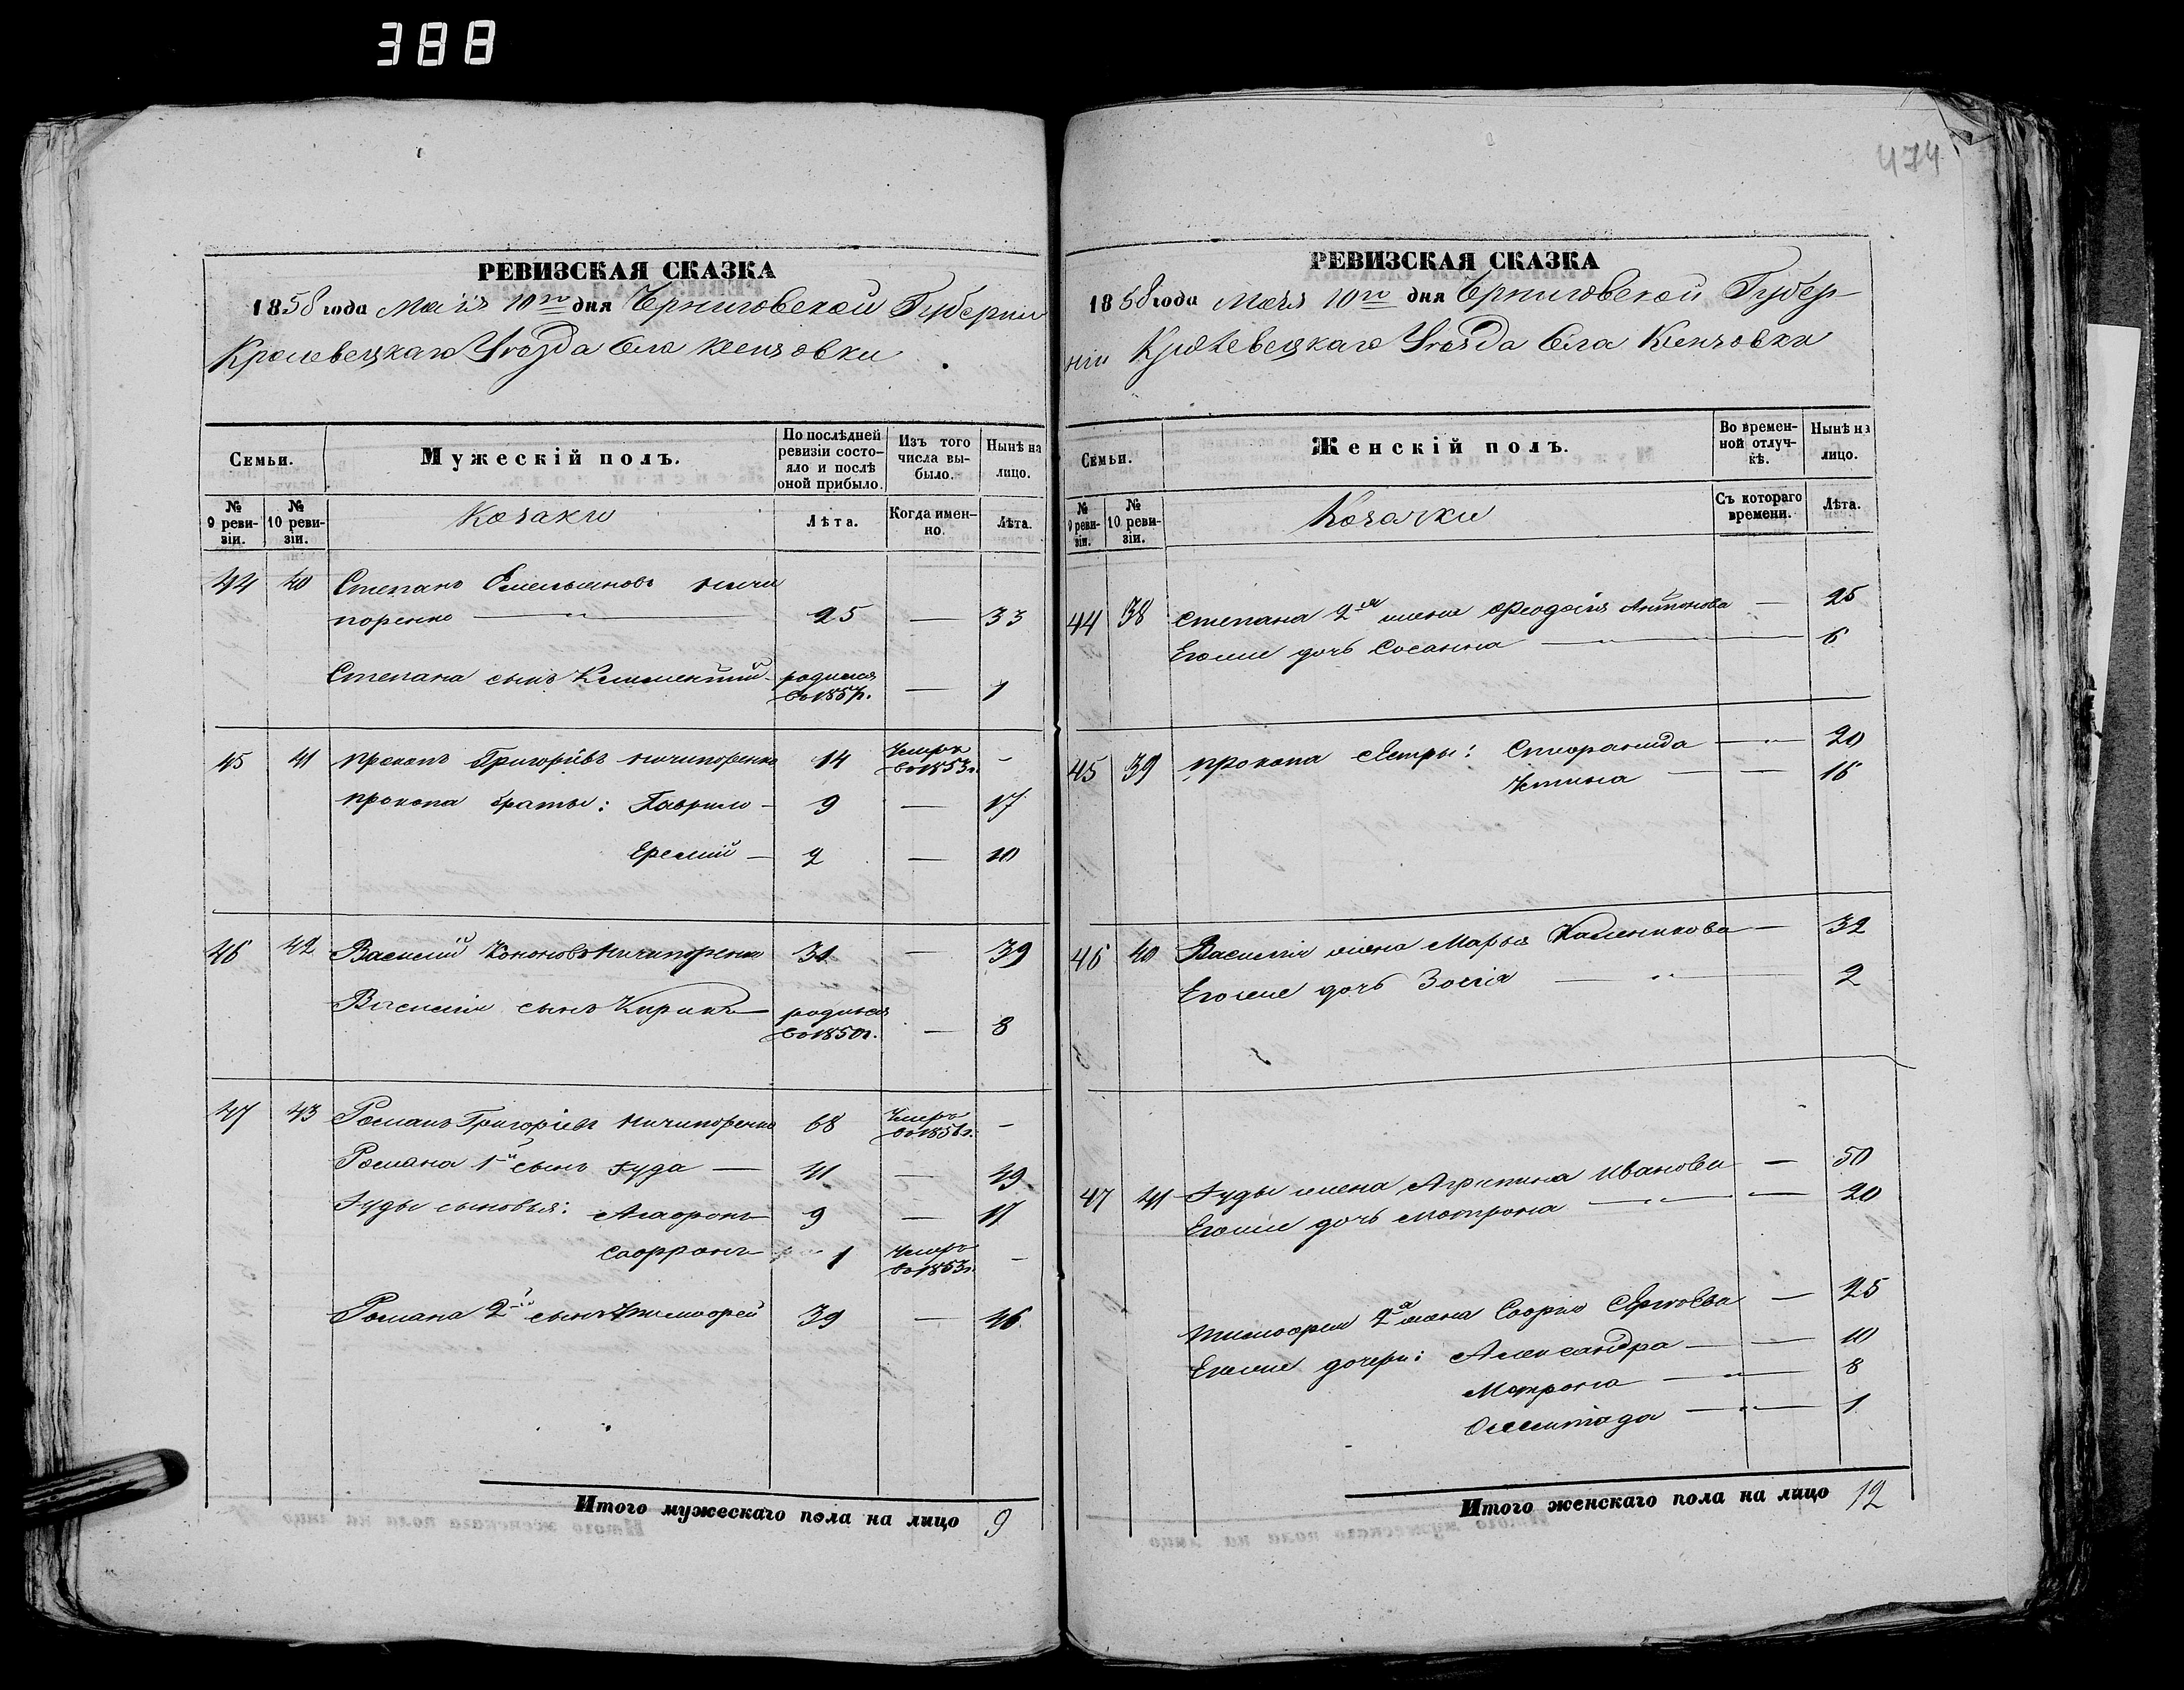 388
474
РЕВИЗСКАЯ СКАЗКА
1858 года Маія 10го дня Черниговской Губерніи
Кролевецкаго Уезда Села Кленовки
Семьи. Мужескій полъ. По послѣдней ревизіи состояло и послѣ оной прибыло. Изъ того числа выбыло. Нынѣ на лицо.
№ 9 ревизіи. № 10 ревизіи. Козаки Лѣта. Когда именно. Лѣта.
44 40 Степанъ Емельяновъ Ничи
поренко —„— 25 — 33
Степана сынъ Климентий родился въ 1857г. — 1
45 41 Прокопъ Григорьевъ Ничипоренко 14 Умеръ въ 1853г. —
Прокопа братья: Гаврило — 9 — 17
Еремий — 2 — 10
46 42 Василий Кононовъ Ничипоренко 31 — 39
Василия сынъ Кирикъ — родился въ 1850г. — 8
47 43 Романъ Григоріевъ Ничипоренко 68 Умеръ въ 1856г. —
Романа 1й сынъ Іуда — 41 — 49
Іуды сыновья: Агафонъ 9 — 17
Софронъ 1 Умеръ въ 1853г. —
Романа 2й сынъ Тимофей 39 — 46
Итого мужескаго пола на лицо 9
РЕВИЗСКАЯ СКАЗКА
1858 года Маія 10го дня Черниговской Губер-
ніи Кролевецкаго Уезда Села Кленовки
Семьи. Женскій полъ. Во временной отлучкѣ. Нынѣ на лицо.
№ 9 ревизіи. № 10 ревизіи. Козачки Съ котораго времени. Лѣта.
44 38 Степана 2я жена Феодосия Антонова — 25
Егоже дочь Сосанна —„— 6
45 39 Прокопа сестры: Степанида —„— 20
Устина — — 16
46 40 Василия жена Марья Каленикова — 32
Егоже дочь Зосія —„— 2
47 41 Іуды жена Агрипина Иванова — 50
Егоже дочь Мотрона —„— — 20
Тимофея 2я жена София Сергеева — 25
Егоже дочери: Александра — — 10
Мотрона —„— 8
—„— 1
Итого женскаго пола на лицо 12